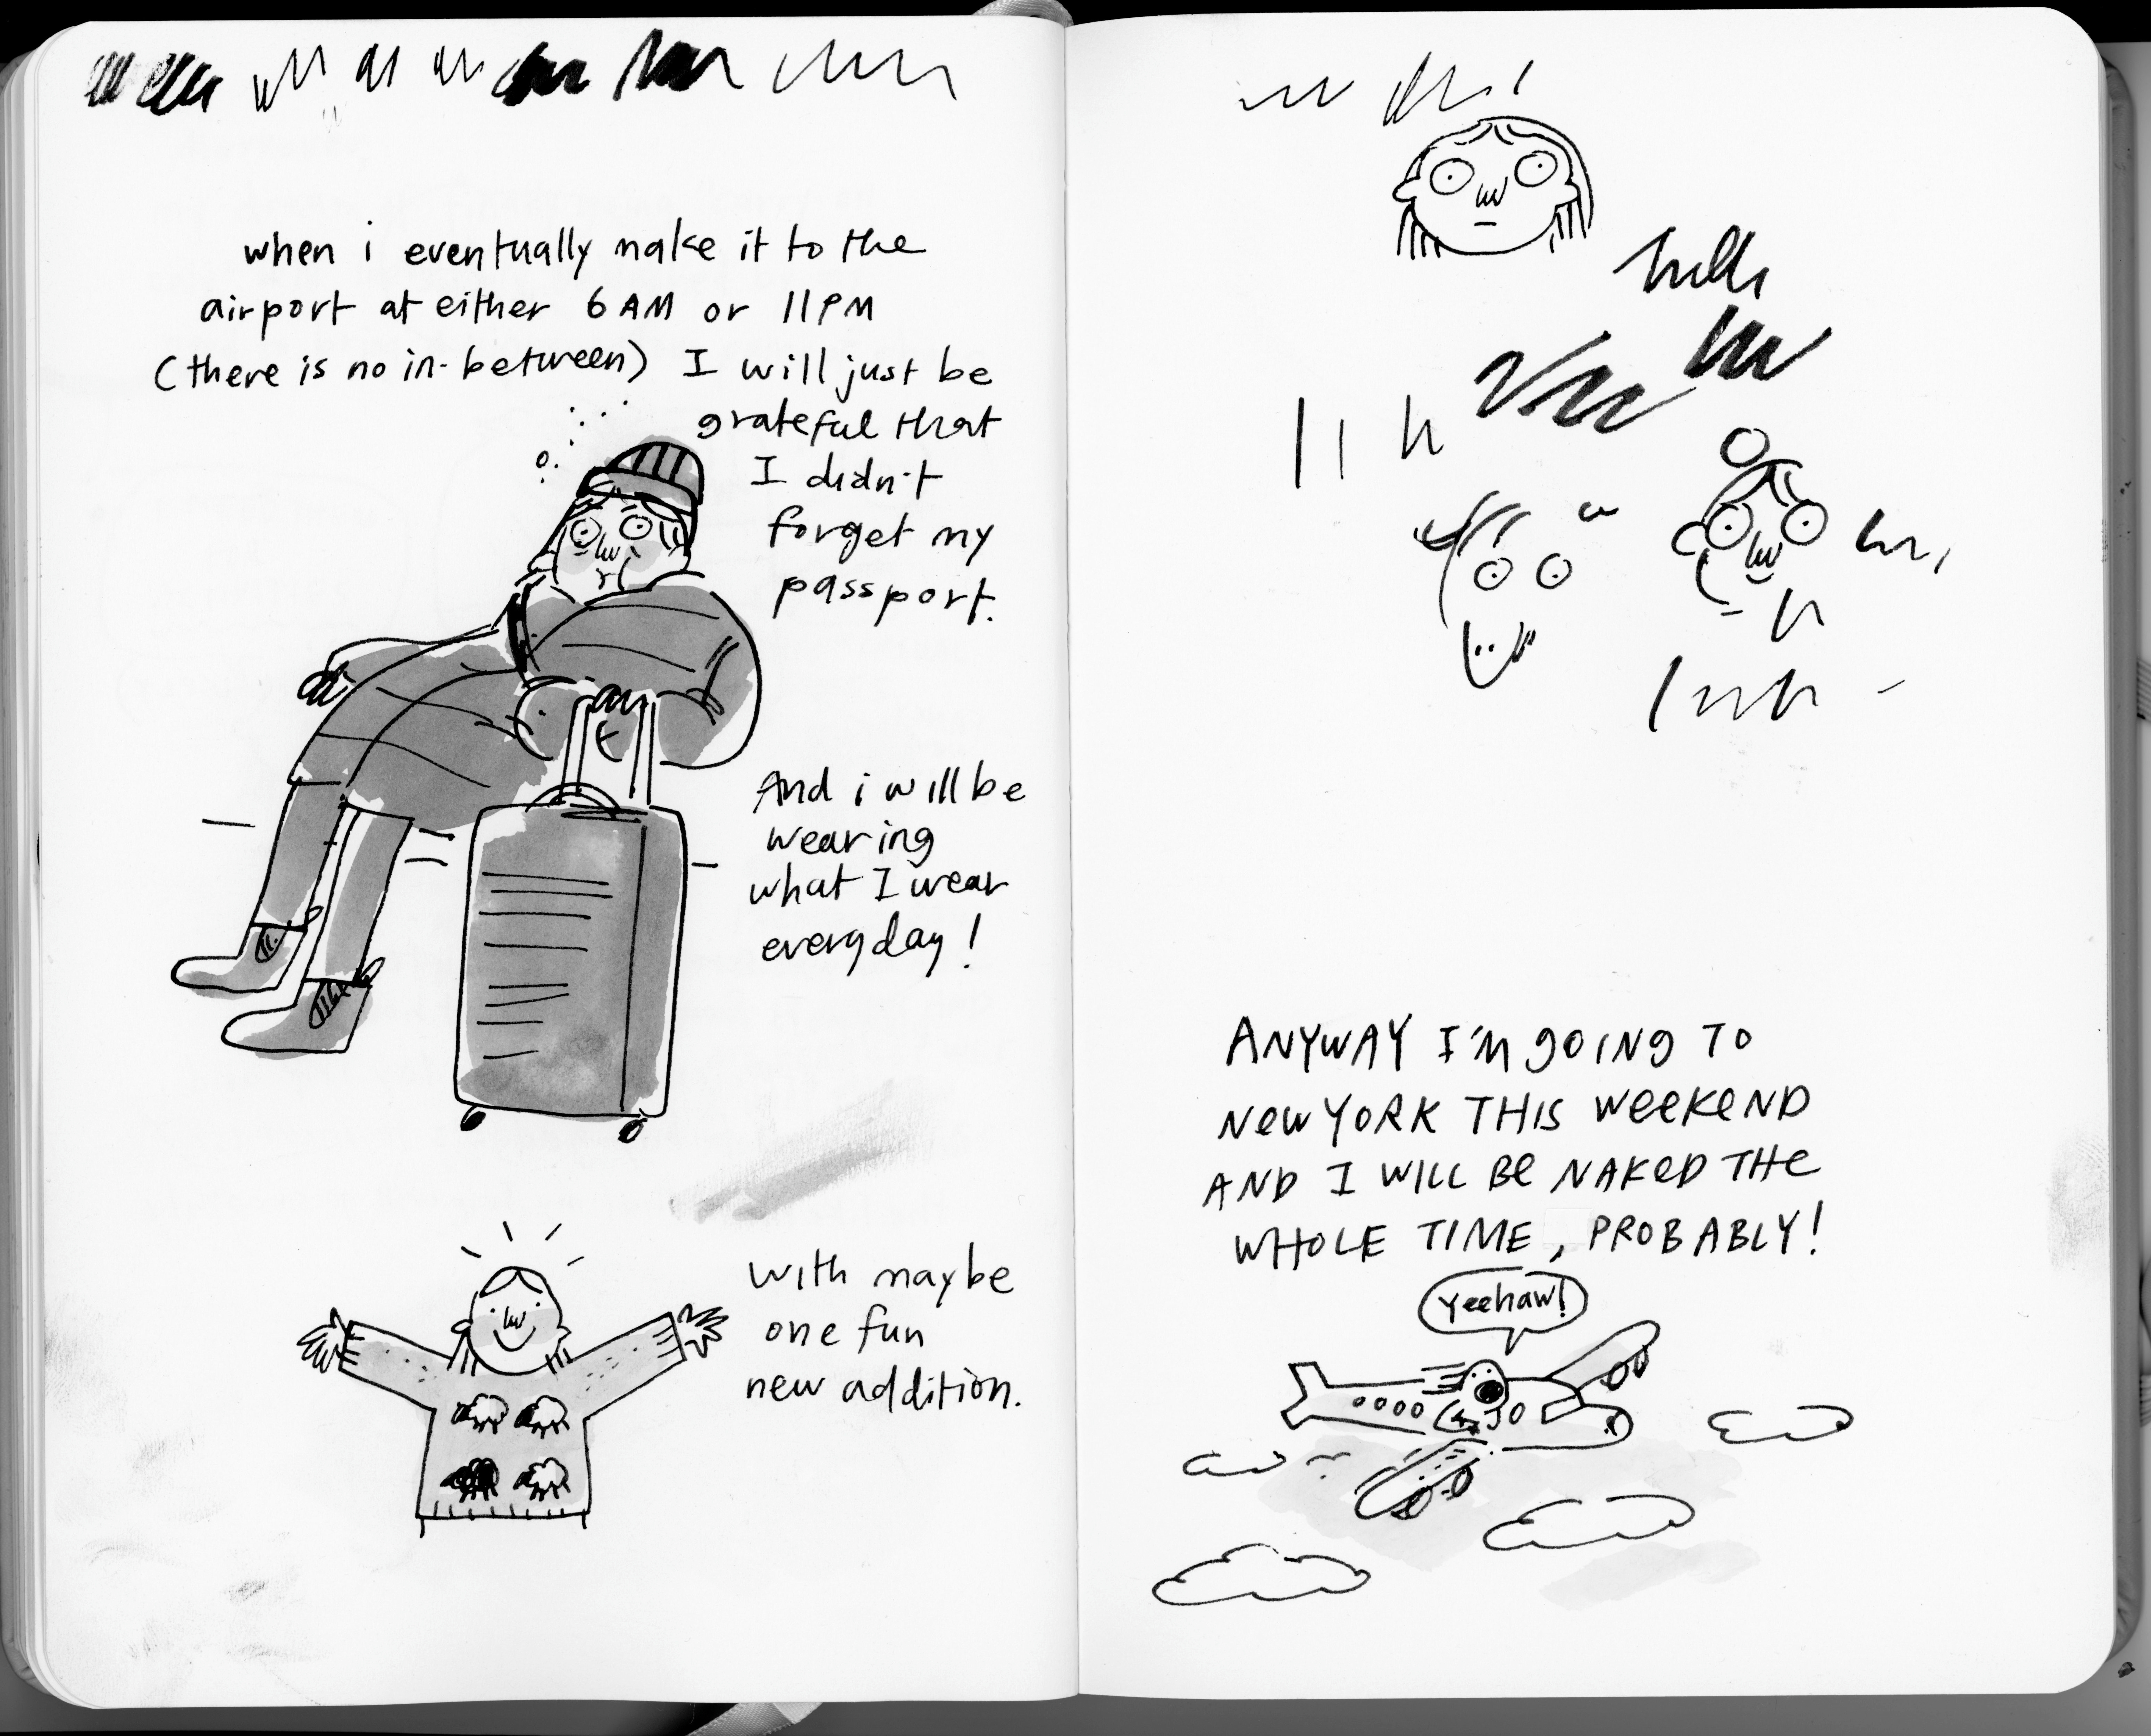 when i eventually make it to the
airport at either 6 AM or 11PM
(there is no in-between) I will just be
grateful that
I didn't
forget my
passport.
And i will be
wearing
what I wear
everyday!
with maybe
one fun
new addition.
ANYWAY I'M gOING TO
NeW YORK THIS WeeKeND
AND I WILL Be NAKeD THe
WHOLE TIME, PROBABLY!
Yeehaw!